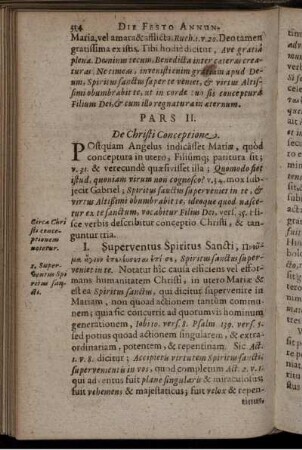 514 DIE FESTO ANNUN-
Maria, vel amara & afflicta Ruth. 1. v. 20. Deo tamen
gratissima existis. Tibi hodie dicitur, Ave gratiâ
plena. Dominus tecum. Benedicta inter cæteras creatu-
ras. Ne timeas, invenisti enim gratiam apud De-
um. Spiritus sanctus super te veniet, & virtus Altis-
simi obumbrabit te, ut in corde tuo sic conceptura
Filium Dei, & cum illo regnatura in æternum.
PARS II.
De Christi Conceptione.
POstquam Angelus indicâsset Mariæ, quòd
conceptura in utero, Filiumq; paritura sit;
v. 31. & verecundè quæsivisset illa; Quomodo fiet
istud, quoniam virum non cognosco? v. 34. mox sub-
jecit Gabriel; Spiritus sanctus superveniet in te, &
virtus Altissimi obumbrabit te, ideoque quod nasce-
tur ex te sanctum, vocabitur Filius Dei, vers. 35. Hisce
verbis describitur conceptio Christi, & tan-
guntur tria.
Circa Chri
sti conce-
ptionem
notetur.
I. Superventus Spiritus Sancti,
Spiritus sanctus super-
veniet in te. Notatur hîc causa efficiens vel effor-
mans humanitatem Christi, in utero Mariæ &
est ea Spiritus sanctus, qui dicitur supervenire in
Mariam, non quoad actionem tantùm commu-
nem; quia sic concurrit ad quorumvis hominum
generationem, Iob. 10. vers. 8. Psalm. 139. vers. 5.
sed potiùs quoad actionem singularem, & extra-
ordinariam, potentem, & repentinam. Sic Act.
1. v. 8. dicitur; Accipietis virtutem Spiritus sancti,
supervenientis in vos, quod completum Act. 2. v. 1.
qui adventus fuit planè singularis & miraculosus
fuit vehemens & majestaticus; fuit velox & repen-
tinus,
1. Super-
ventus Spi
ritus san-
cti.